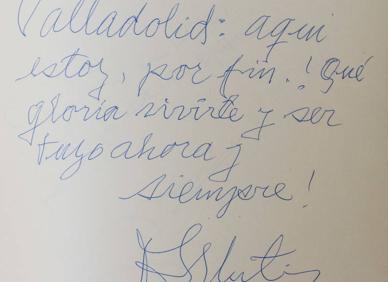 Valladolid: aquí
estoy, por fin! ¡Qué
gloria vivirte y ser
tuyo ahora y
siempre!